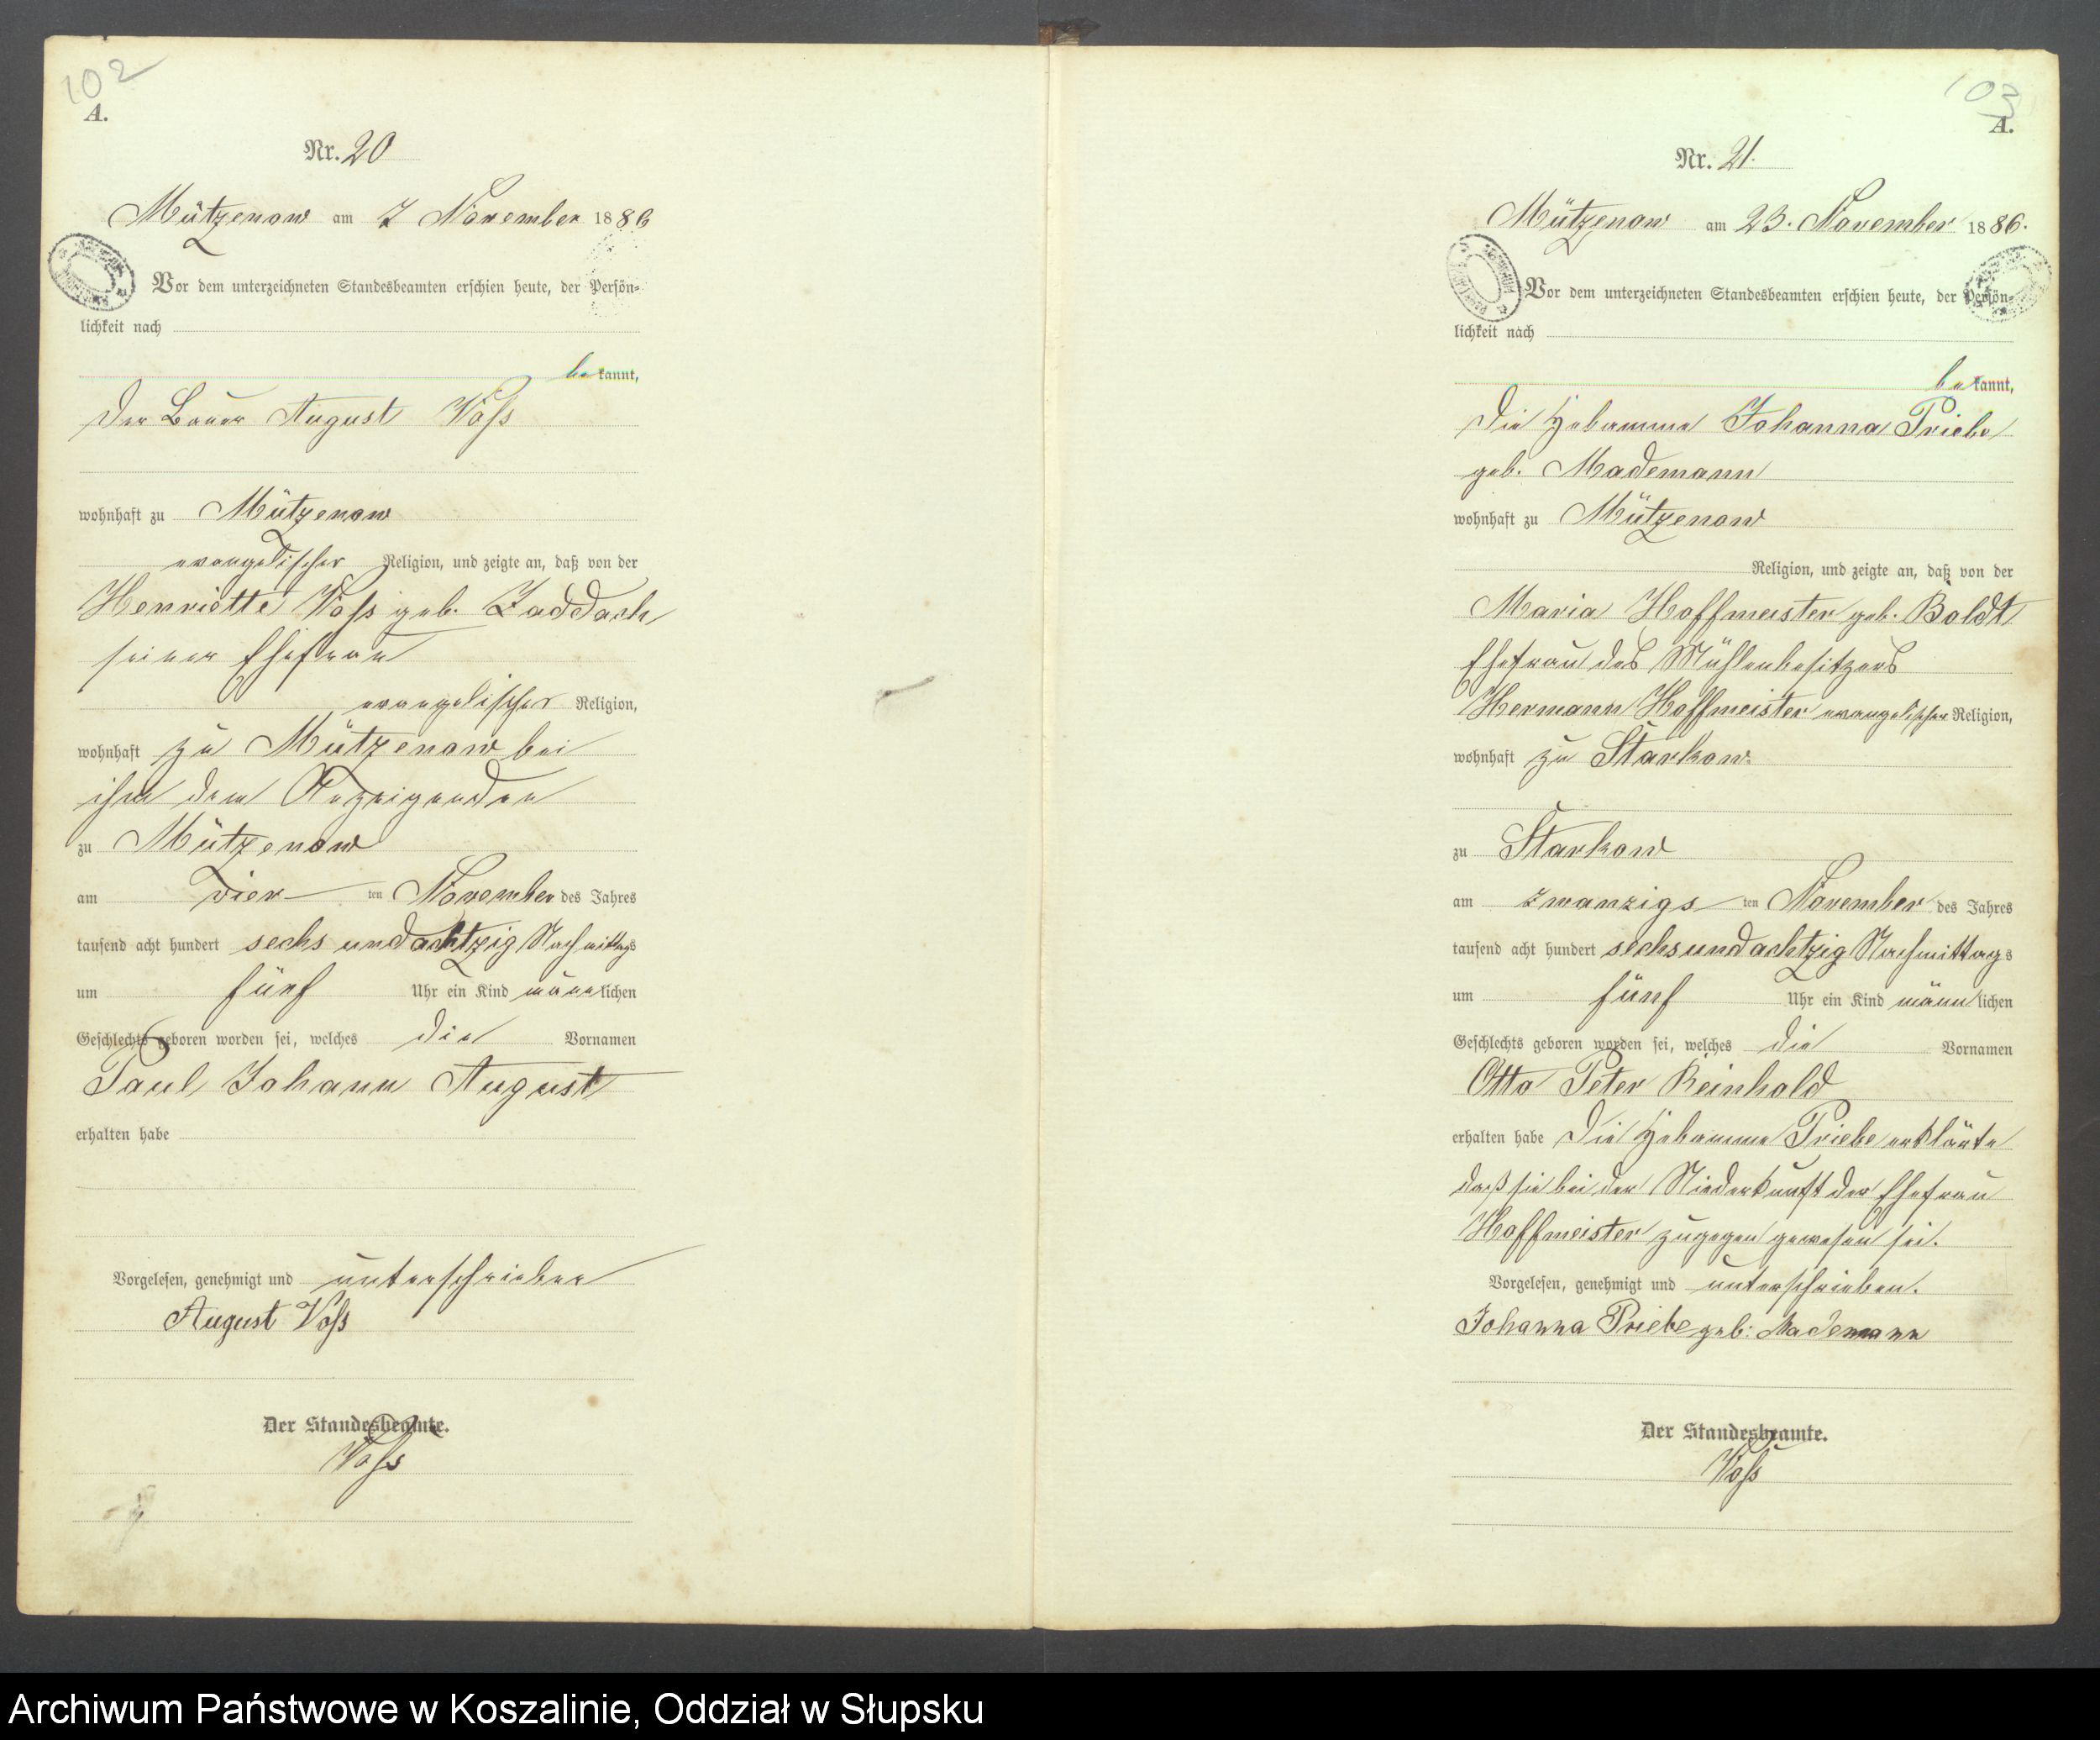 102
A.
Nr. 20
Mützenow am 7 November 1886
Vor dem unterzeichneten Standesbeamten erschien heute, der Persön-
lichkeit nach
bekannt,
der Bauer August Voss
wohnhaft zu Mützenow
evangelischer Religion, und zeigte an, daß von der
Henriette Voss geb. Zaddach
seiner Ehefrau
evangelischer Religion,
wohnhaft zu Mützenow bei
ihm dem Anzeigenden
zu Mützenow
am vier ten November des Jahres
tausend acht hundert sechs und achtzig Nachmittags
um fünf Uhr ein Kind männlichen
Geschlechts geboren worden sei, welches die Vornamen
Paul Johann August
erhalten habe
Vorgelesen, genehmigt und unterschrieben
August Voss
Der Standesbeamte.
Voss
103
A.
Nr. 21.
Mützenow am 23. November 1886.
Vor dem unterzeichneten Standesbeamten erschien heute, der Persön-
lichkeit nach
bekannt,
die Hebamme Johanna Priebe
geb. Mademann
wohnhaft zu Mützenow
Religion, und zeigte an, daß von der
Maria Hoffmeister geb. Boldt
Ehefrau des Mühlenbesitzers
Hermann Hoffmeister evangelischer Religion,
wohnhaft zu Starkow
zu Starkow
am zwanzigs ten November des Jahres
tausend acht hundert sechsundachtzig Nachmittags
um fünf Uhr ein Kind männlichen
Geschlechts geboren worden sei, welches die Vornamen
Otto Peter Reinhold
erhalten habe Die Hebamme Priebe erklärte
daß sie bei der Niederkunft der Ehefrau
Hoffmeister zugegen gewesen sei.
Vorgelesen, genehmigt und unterschrieben.
Johanna Priebe geb: Mademann
Der Standesbeamte.
Voss
Archiwum Państwowe w Koszalinie, Oddział w Słupsku